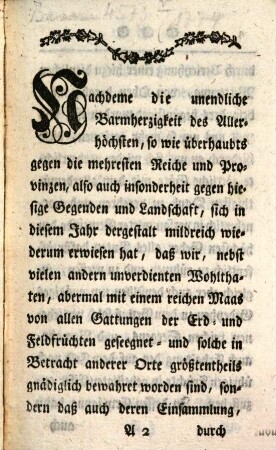 Nachdeme die unendliche
Barmherzigkeit des Aller-
höchsten, so wie überhaubts
gegen die mehresten Reiche und Pro-
vinzen, also auch insonderheit gegen hie-
sige Gegenden und Landschaft, sich in
diesem Jahr dergestalt mildreich wie-
derum erwiesen hat, daß wir, nebst
vielen andern unverdienten Wohltha-
ten, abermal mit einem reichen Maas
von allen Gattungen der Erd- und
Feldfrüchten geseegnet- und solche in
Betracht anderer Orte größtentheils
gnädiglich bewahret worden sind, son-
dern daß auch deren Einsammlung,
A 2 durch